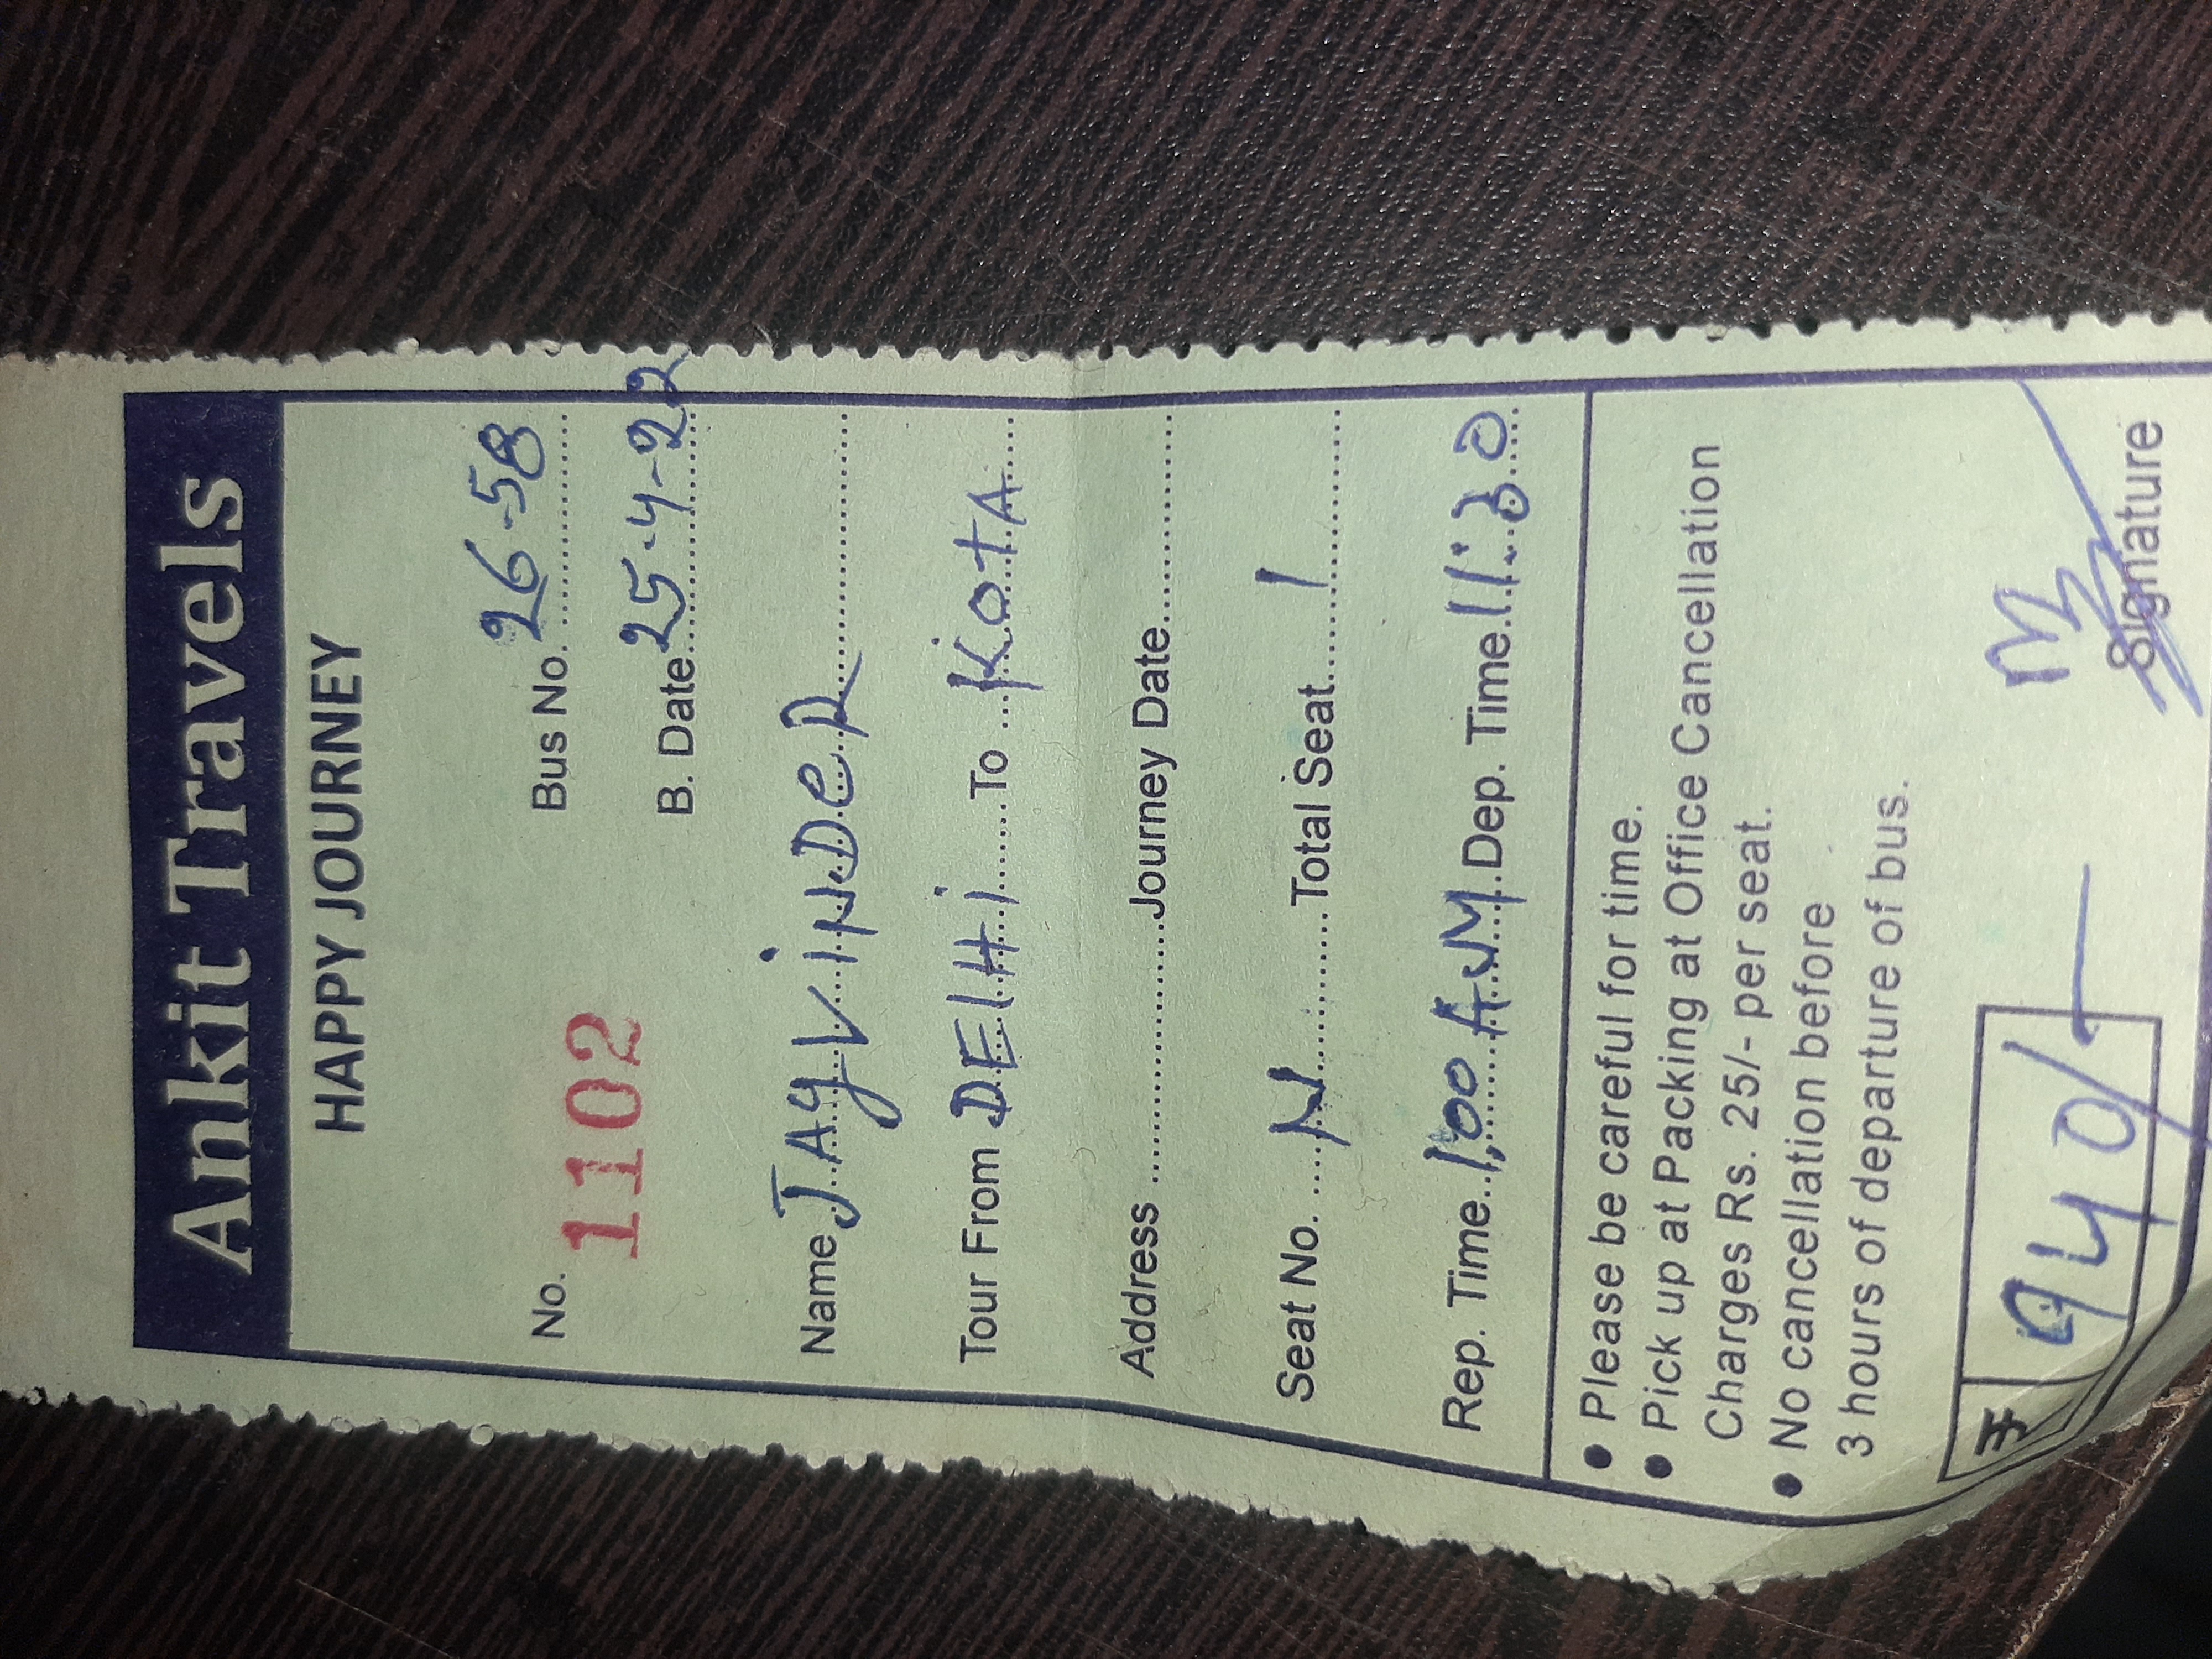 Ankit Travels
HAPPY JOURNEY
Bus No. 26-58
No. 1102
B. Date 25-4-22
Name JAgViNDeR
Tour From DElHi To KotA
Address Journey Date
Seat No. N Total Seat 1
Rep. Time 1,00 A.M Dep. Time 11:30
• Please be careful for time.
• Pick up at Packing at Office Cancellation
Charges Rs. 25/- per seat.
• No cancellation before
3 hours of departure of bus.
₹ 940/-
Signature